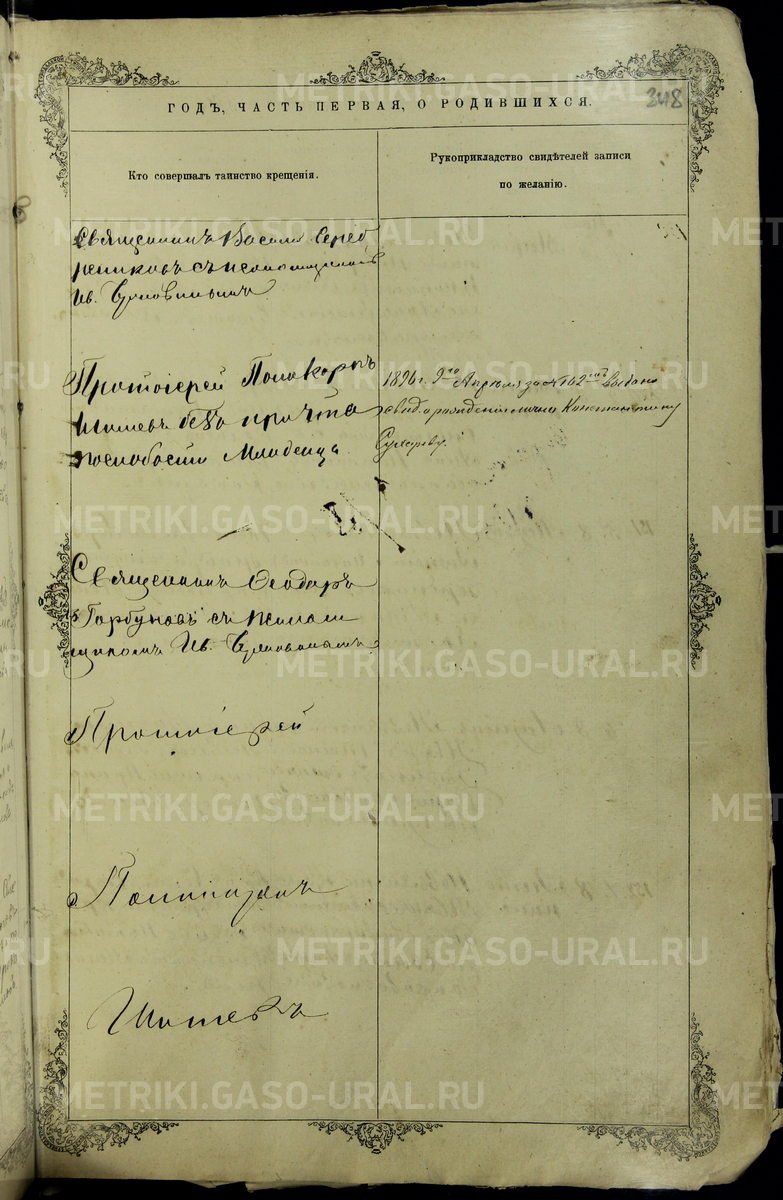 348
ГОДЪ, ЧАСТЬ ПЕРВАЯ, О РОДИВШИХСЯ.
Кто совершалъ таинство крещенія.
Рукоприкладство свидѣтелей записи
по желанію.
Священникъ Василій Сереб
рениковъ съ псаломщикомъ
Ив.
Протоіерей Поликарпъ
Шишевъ безъ причта
по слабости Младенца
1896 г. 9го Апрѣля за № 162 выдано
свид. о рожденіи лично Константину
Сухареву.
Священникъ Ѳеодоръ
Горбуновъ съ псалом
щикомъ Ив.
Протоіерей
Поликарпъ
Шишевъ
METRIKI.GASO-URAL.RU